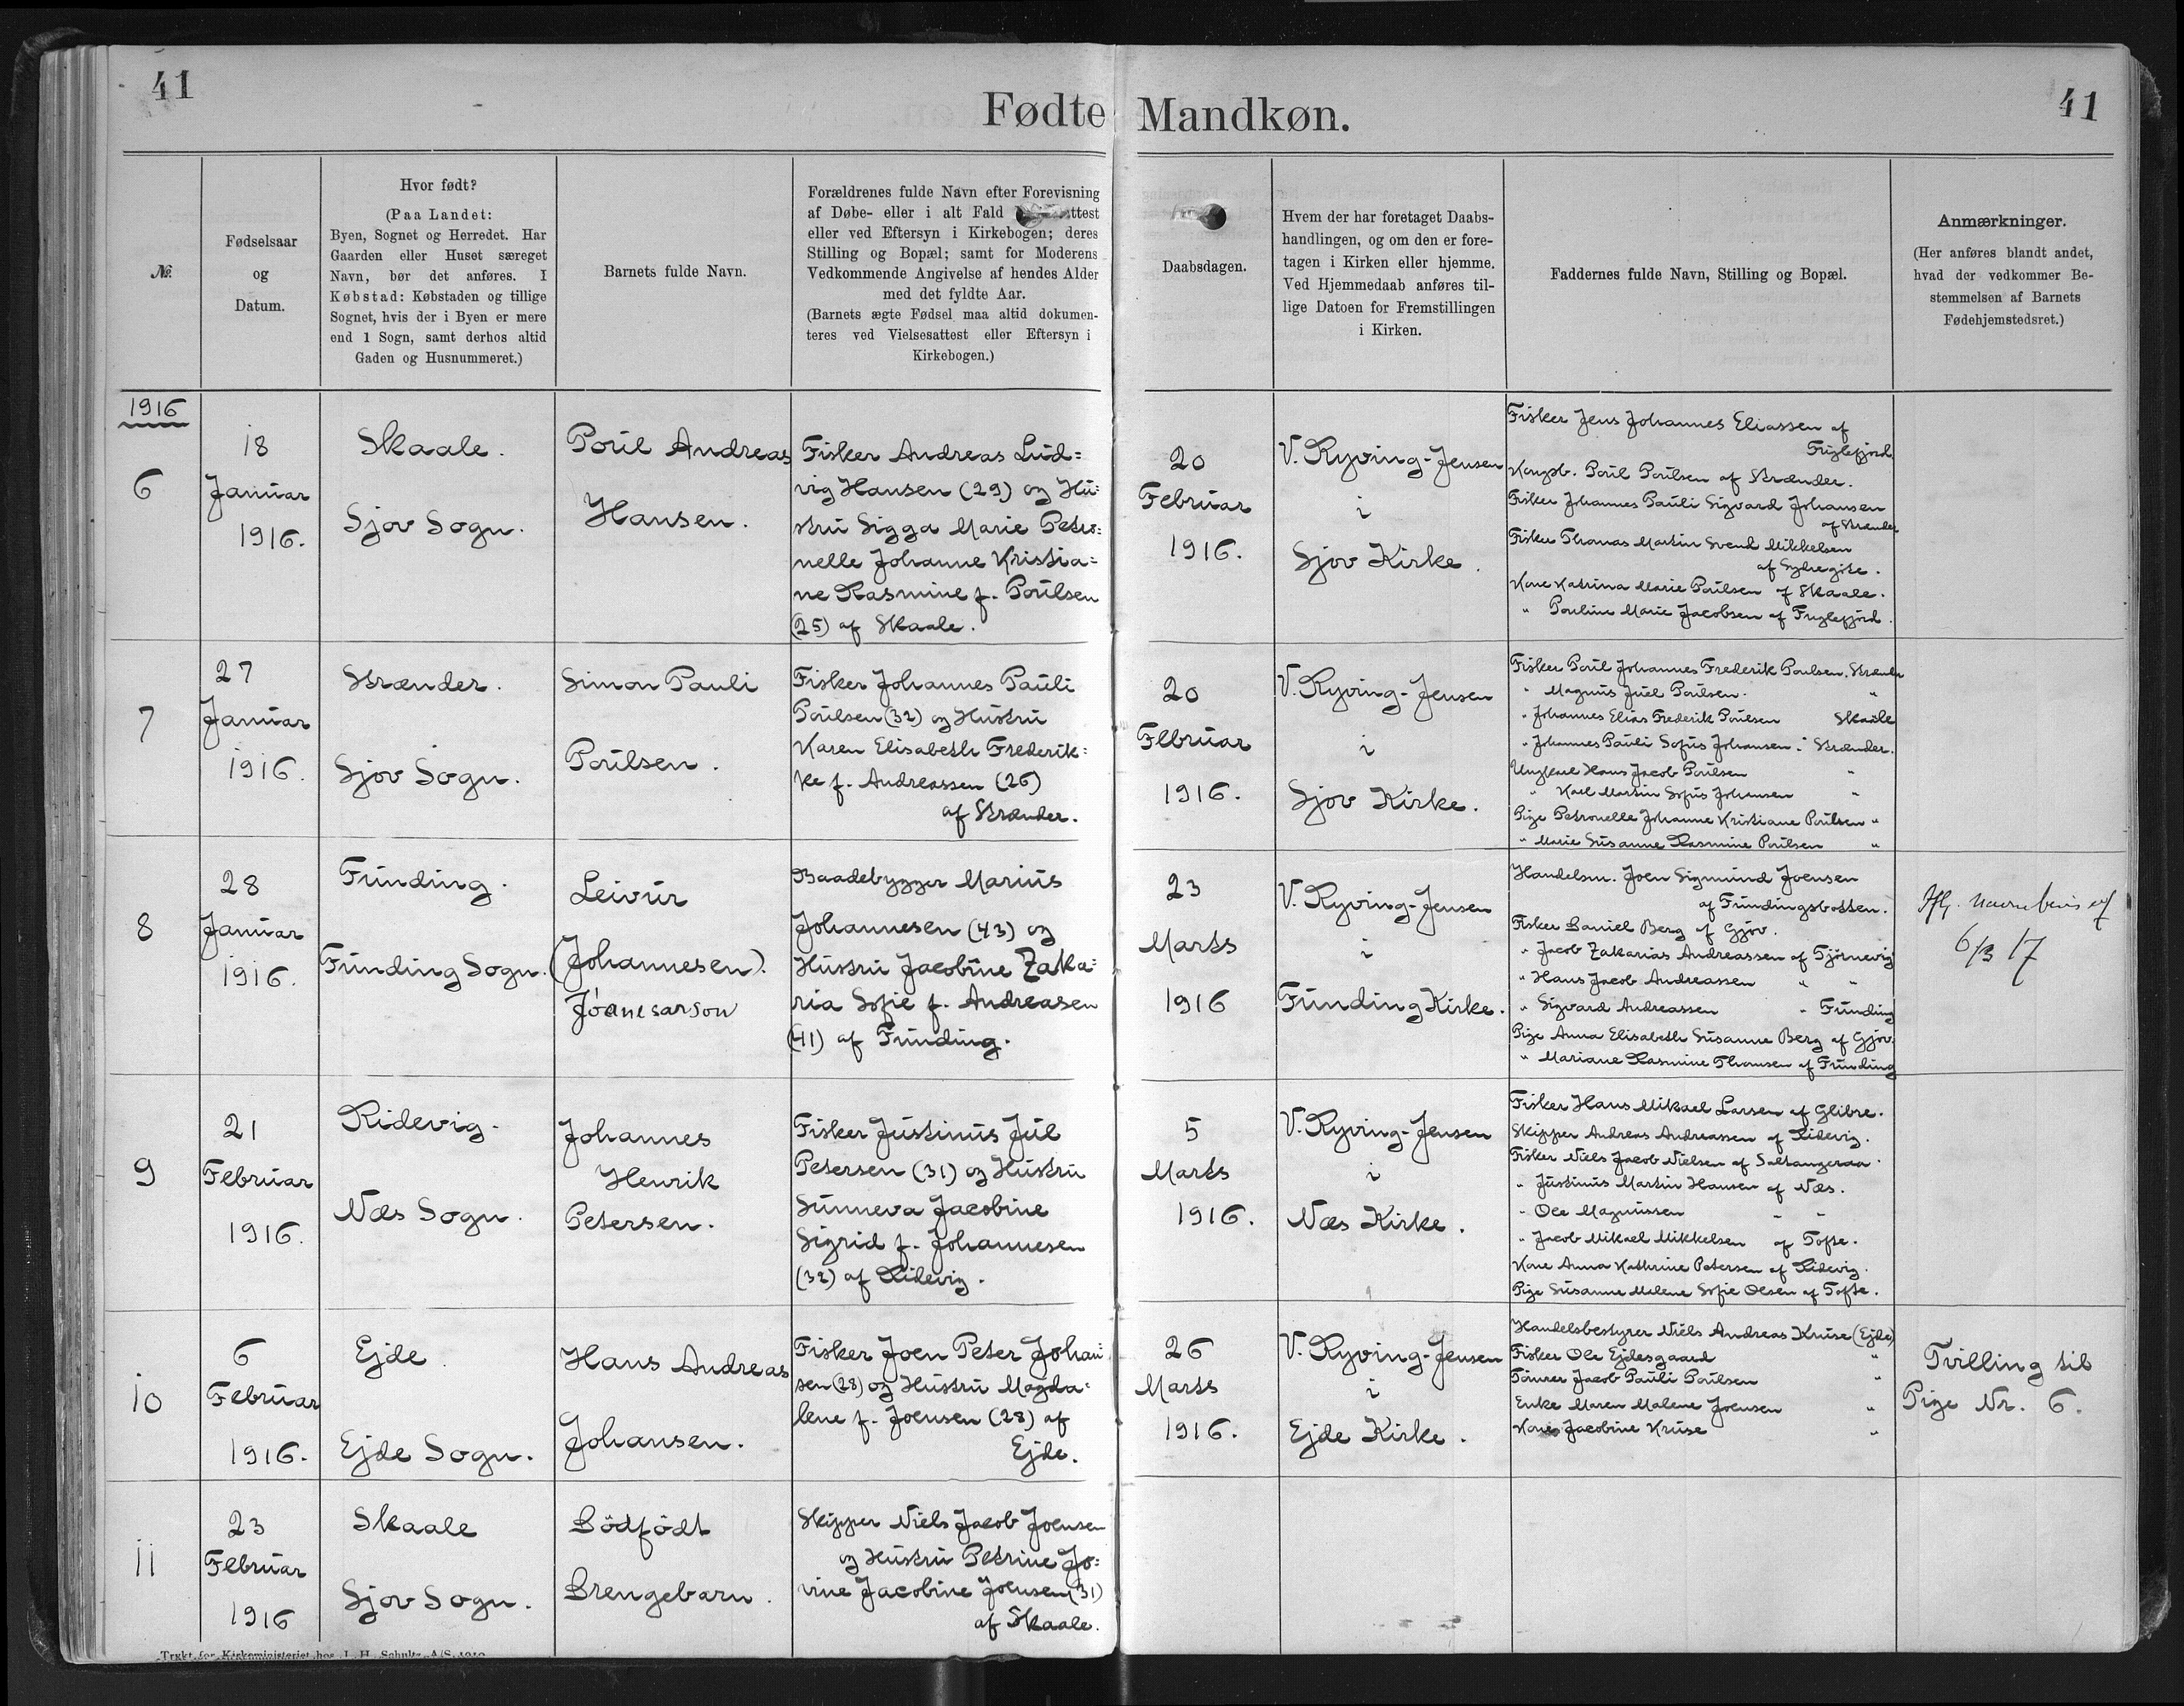 41
Fødte Mandkøn.
41
№.
Fødselsaar
og
Datum.
Hvor født?
(Paa Landet:
Byen, Sognet og Herredet. Har
Gaarden eller Huset særeget
Navn, bør det anføres. I
Købstad: Købstaden og tillige
Sognet, hvis der i Byen er mere
end 1 Sogn, samt derhos altid
Gaden og Husnummeret.)
Barnets fulde Navn.
Forældrenes fulde Navn efter Forevisning
af Døbe- eller i alt Fald
eller ved Eftersyn i Kirkebogen; deres
Stilling og Bopæl; samt for Moderens
Vedkommende Angivelse af hendes Alder
med det fyldte Aar.
(Barnets ægte Fødsel maa altid dokumen-
teres ved Vielsesattest eller Eftersyn i
Kirkebogen.)
Daabsdagen.
Hvem der har foretaget Daabs-
handlingen, og om den er fore-
tagen i Kirken eller hjemme.
Ved Hjemmedaab anføres til-
lige Datoen for Fremstillingen
i Kirken.
Faddernes fulde Navn, Stilling og Bopæl.
Anmærkninger.
(Her anføres blandt andet,
hvad der vedkommer Be-
stemmelsen af Barnets
Fødehjemstedsret.)
1916
6
18
Januar
1916.
Skaale.
Sjov Sogn.
Poul Andreas
Hansen.
Fisker Andreas Lud=
vig Hansen (29) og Hu=
stru Sigga Marie Petro=
nelle Johanne Kristia=
ne Rasmine f. Poulsen
(25) af Skaale.
20
Februar
1916.
V. Ryving-Jensen
i
Sjov Kirke.
Fisker Jens Johannes Eliassen af
Fuglefjord.
Kongsb. Poul Poulsen af Strænder.
Fisker Johannes Pauli Sigvard Johansen
af Strænder
Fisker Thomas Martin Svend Mikkelsen
af Sydregøte.
Kone Katrina Marie Poulsen af Skaale.
" Pouline Marie Jacobsen af Fuglefjord.
7
27
Januar
1916.
Strænder.
Sjov Sogn.
Simon Pauli
Poulsen.
Fisker Johannes Pauli
Poulsen (32) og Hustru
Karen Elisabeth Frederik=
ke f. Andreassen (26)
af Strænder.
20
Februar
1916.
V. Ryving-Jensen
i
Sjov Kirke.
Fisker Poul Johannes Frederik Poulsen. Strænder
" Magnus Juel Poulsen. "
" Johannes Elias Frederik Poulsen Skaale
" Johannes Pauli Sofus Johansen. Strænder.
Ungkarl Hans Jacob Poulsen "
" Karl Martin Sofus Johansen "
Pige Petronelle Johanne Kristiane Poulsen "
" Marie Susanne Rasmine Poulsen "
8
28
Januar
1916.
Funding.
Funding Sogn.
Leivur
(Johannesen).
Jóanesarson
Baadebygger Marius
Johannesen (43) og
Hustru Jacobine Zaka=
ria Sofie f. Andreasen
(41) af Funding.
23
Marts
1916
V. Ryving-Jensen
i
Funding Kirke.
Handelsm. Joen Sigmund Joensen
af Fundingsbotten.
Fisker Daniel Berg af Gjov.
" Jacob Zakarias Andreassen af Tjørnevig
" Hans Jacob Andreassen " "
" Sigvard Andreassen " Funding
Pige Anna Elisabeth Susanne Berg af Gjov.
" Mariane Rasmine Thomsen af Funding
navnebevis af
6/3 17
9
21
Februar
1916.
Ridevig.
Næs Sogn.
Johannes
Henrik
Petersen.
Fisker Justinus Jul
Petersen (31) og Hustru
Sunneva Jacobine
Sigrid f. Johannesen
(32) af Ridevig.
5
Marts
1916.
V. Ryving-Jensen
i
Næs Kirke.
Fisker Hans Mikael Larsen af Glibre.
Skipper Andreas Andreassen af Ridevig.
Fisker Niels Jacob Nielsen af Saltangeraa.
" Justinus Martin Hansen af Næs.
" Ole Magnussen " "
" Jacob Mikael Mikkelsen af Tofte.
Kone Anna Kathrine Petersen af Ridevig.
Pige Susanne Malene Sofie Olsen af Tofte.
10
6
Februar
1916.
Ejde
Ejde Sogn.
Hans Andreas
Johansen.
Fisker Joen Peter Johan
sen (28) og Hustru Magda=
lene f. Joensen (28) af
Ejde.
26
Marts
1916.
V. Ryving-Jensen
i
Ejde Kirke.
Handelsbestyrer Niels Andreas Kruse (Ejde)
Fisker Ole Ejdesgaard "
Tømrer Jacob Pauli Poulsen "
Enke Maren Malene Joensen "
Kone Jacobine Kruse "
Tvilling til
Pige Nr. 6.
11
23
Februar
1916
Skaale
Sjov Sogn.
Dödfödt
Drengebarn.
Skipper Niels Jacob Joensen
og Hustru Petrine Jo=
vine Jacobine Joensen (31)
af Skaale.
Trykt for Kirkeministeriet hos J. H. Schultz A/S.